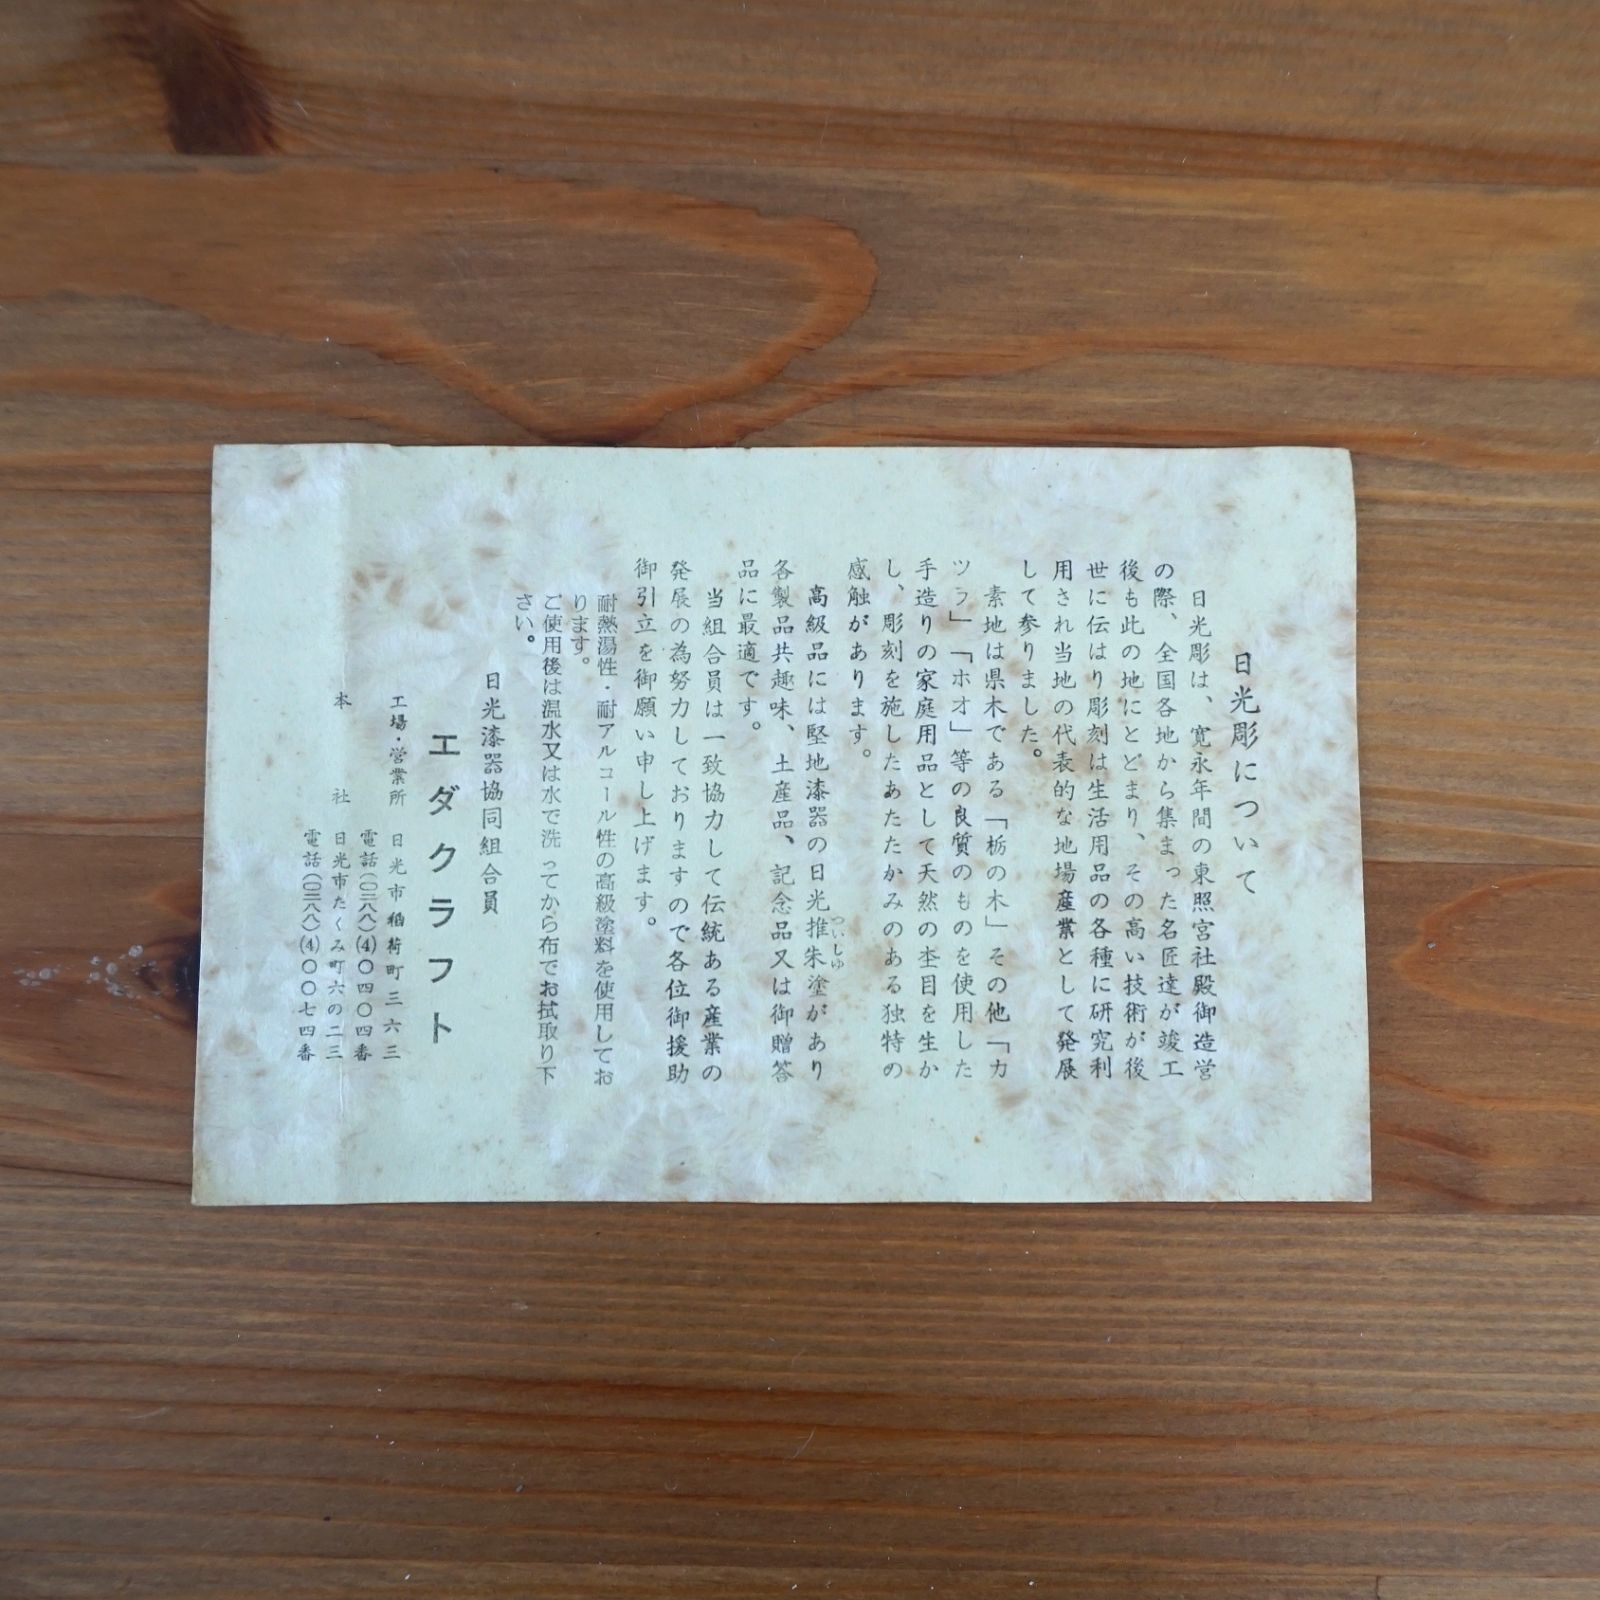 日光彫について
日光彫は、寛永年間の東照宮社殿御造営
の際、全国各地から集まった名匠達が竣工
後も此の地にとどまり、その高い技術が後
世に伝はり彫刻は生活用品の各種に研究利
用され当地の代表的な地場産業として発展
して参りました。
素地は県木である「栃の木」その他「カ
ツラ」「ホオ」等の良質のものを使用した
手造りの家庭用品として天然の杢目を生か
し、彫刻を施したあたたかみのある独特の
感触があります。
高級品には堅地漆器の日光推朱塗があり
ついしゆ
各製品共趣味、土産品、記念品又は御贈答
品に最適です。
当組合員は一致協力して伝統ある産業の
発展の為努力しておりますので各位御援助
御引立を御願い申し上げます。
耐熱湯性・耐アルコール性の高級塗料を使用してお
ります。
ご使用後は温水又は水で洗ってから布でお拭取り下
さい。
日光漆器協同組合員
エダクラフト
工場・営業所 日光市稲荷町三六三
電話(〇二八八)(4)〇四〇〇四番
本社 日光市たくみ町六の二三
電話(〇二八八)(4)〇〇〇七四番